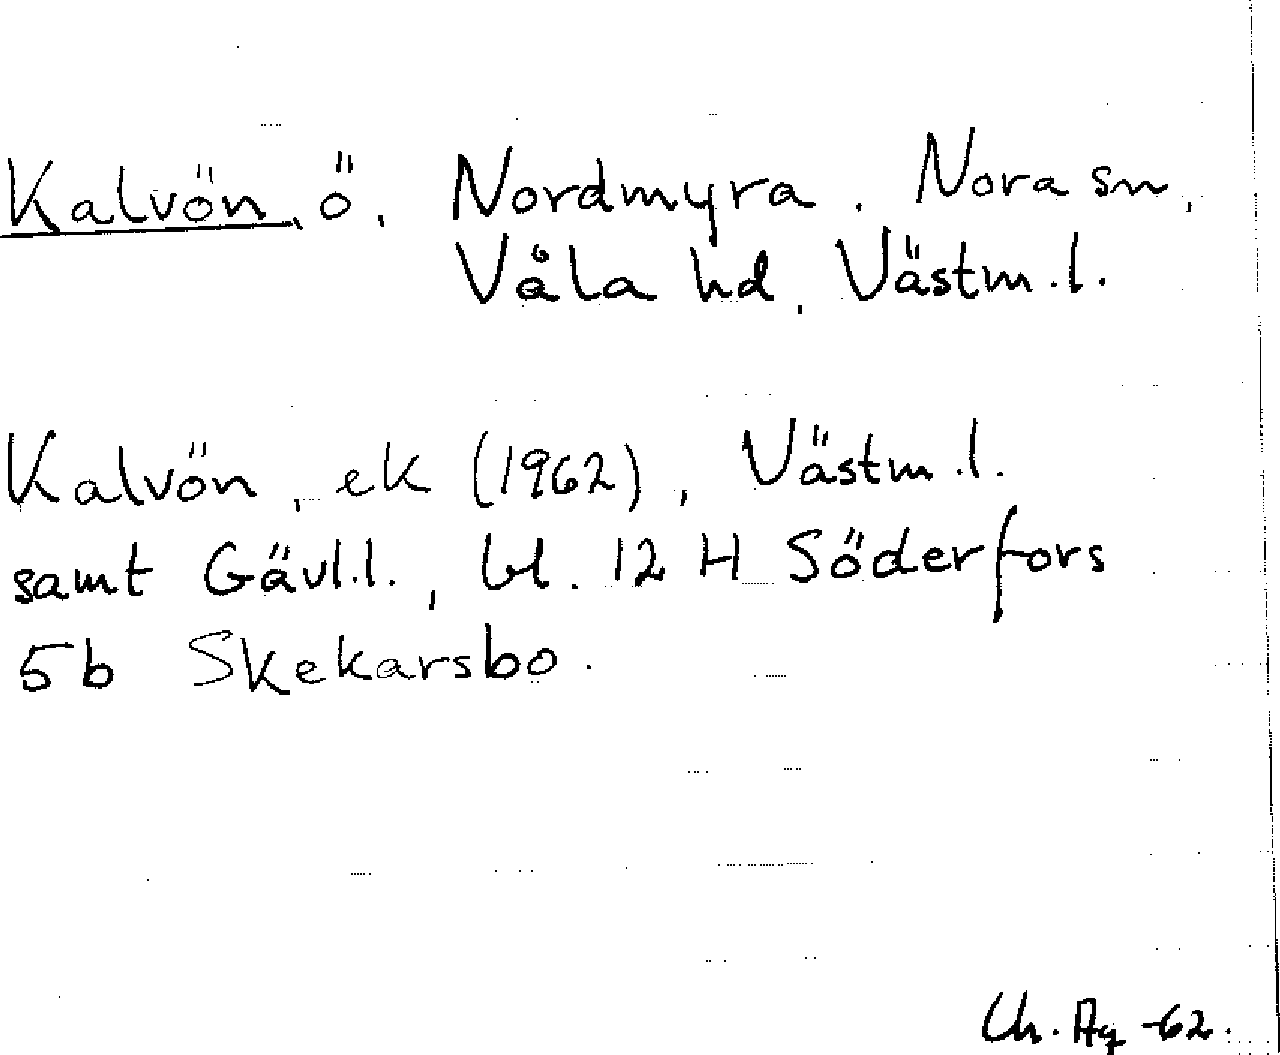 Kalvön, ö. Nordmyra. Nora sn,
Våla hd, Västm.l.
Kalvön, ek (1962), Västm.l.
samt Gävl.l., bl. 12 H Söderfors
5b Skekarsbo.
Ch. Ag -62.